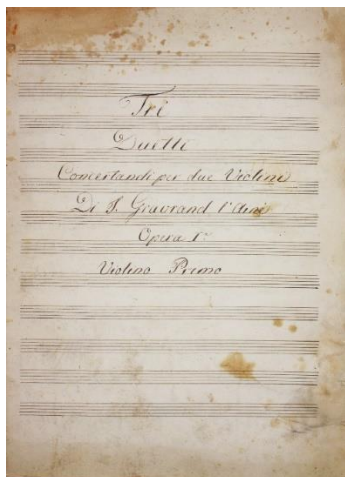 Tre
Duetti
Concertandi per due Violini
Di J. Gravrand l'Ainé
Opera 1.ª
Violino Primo